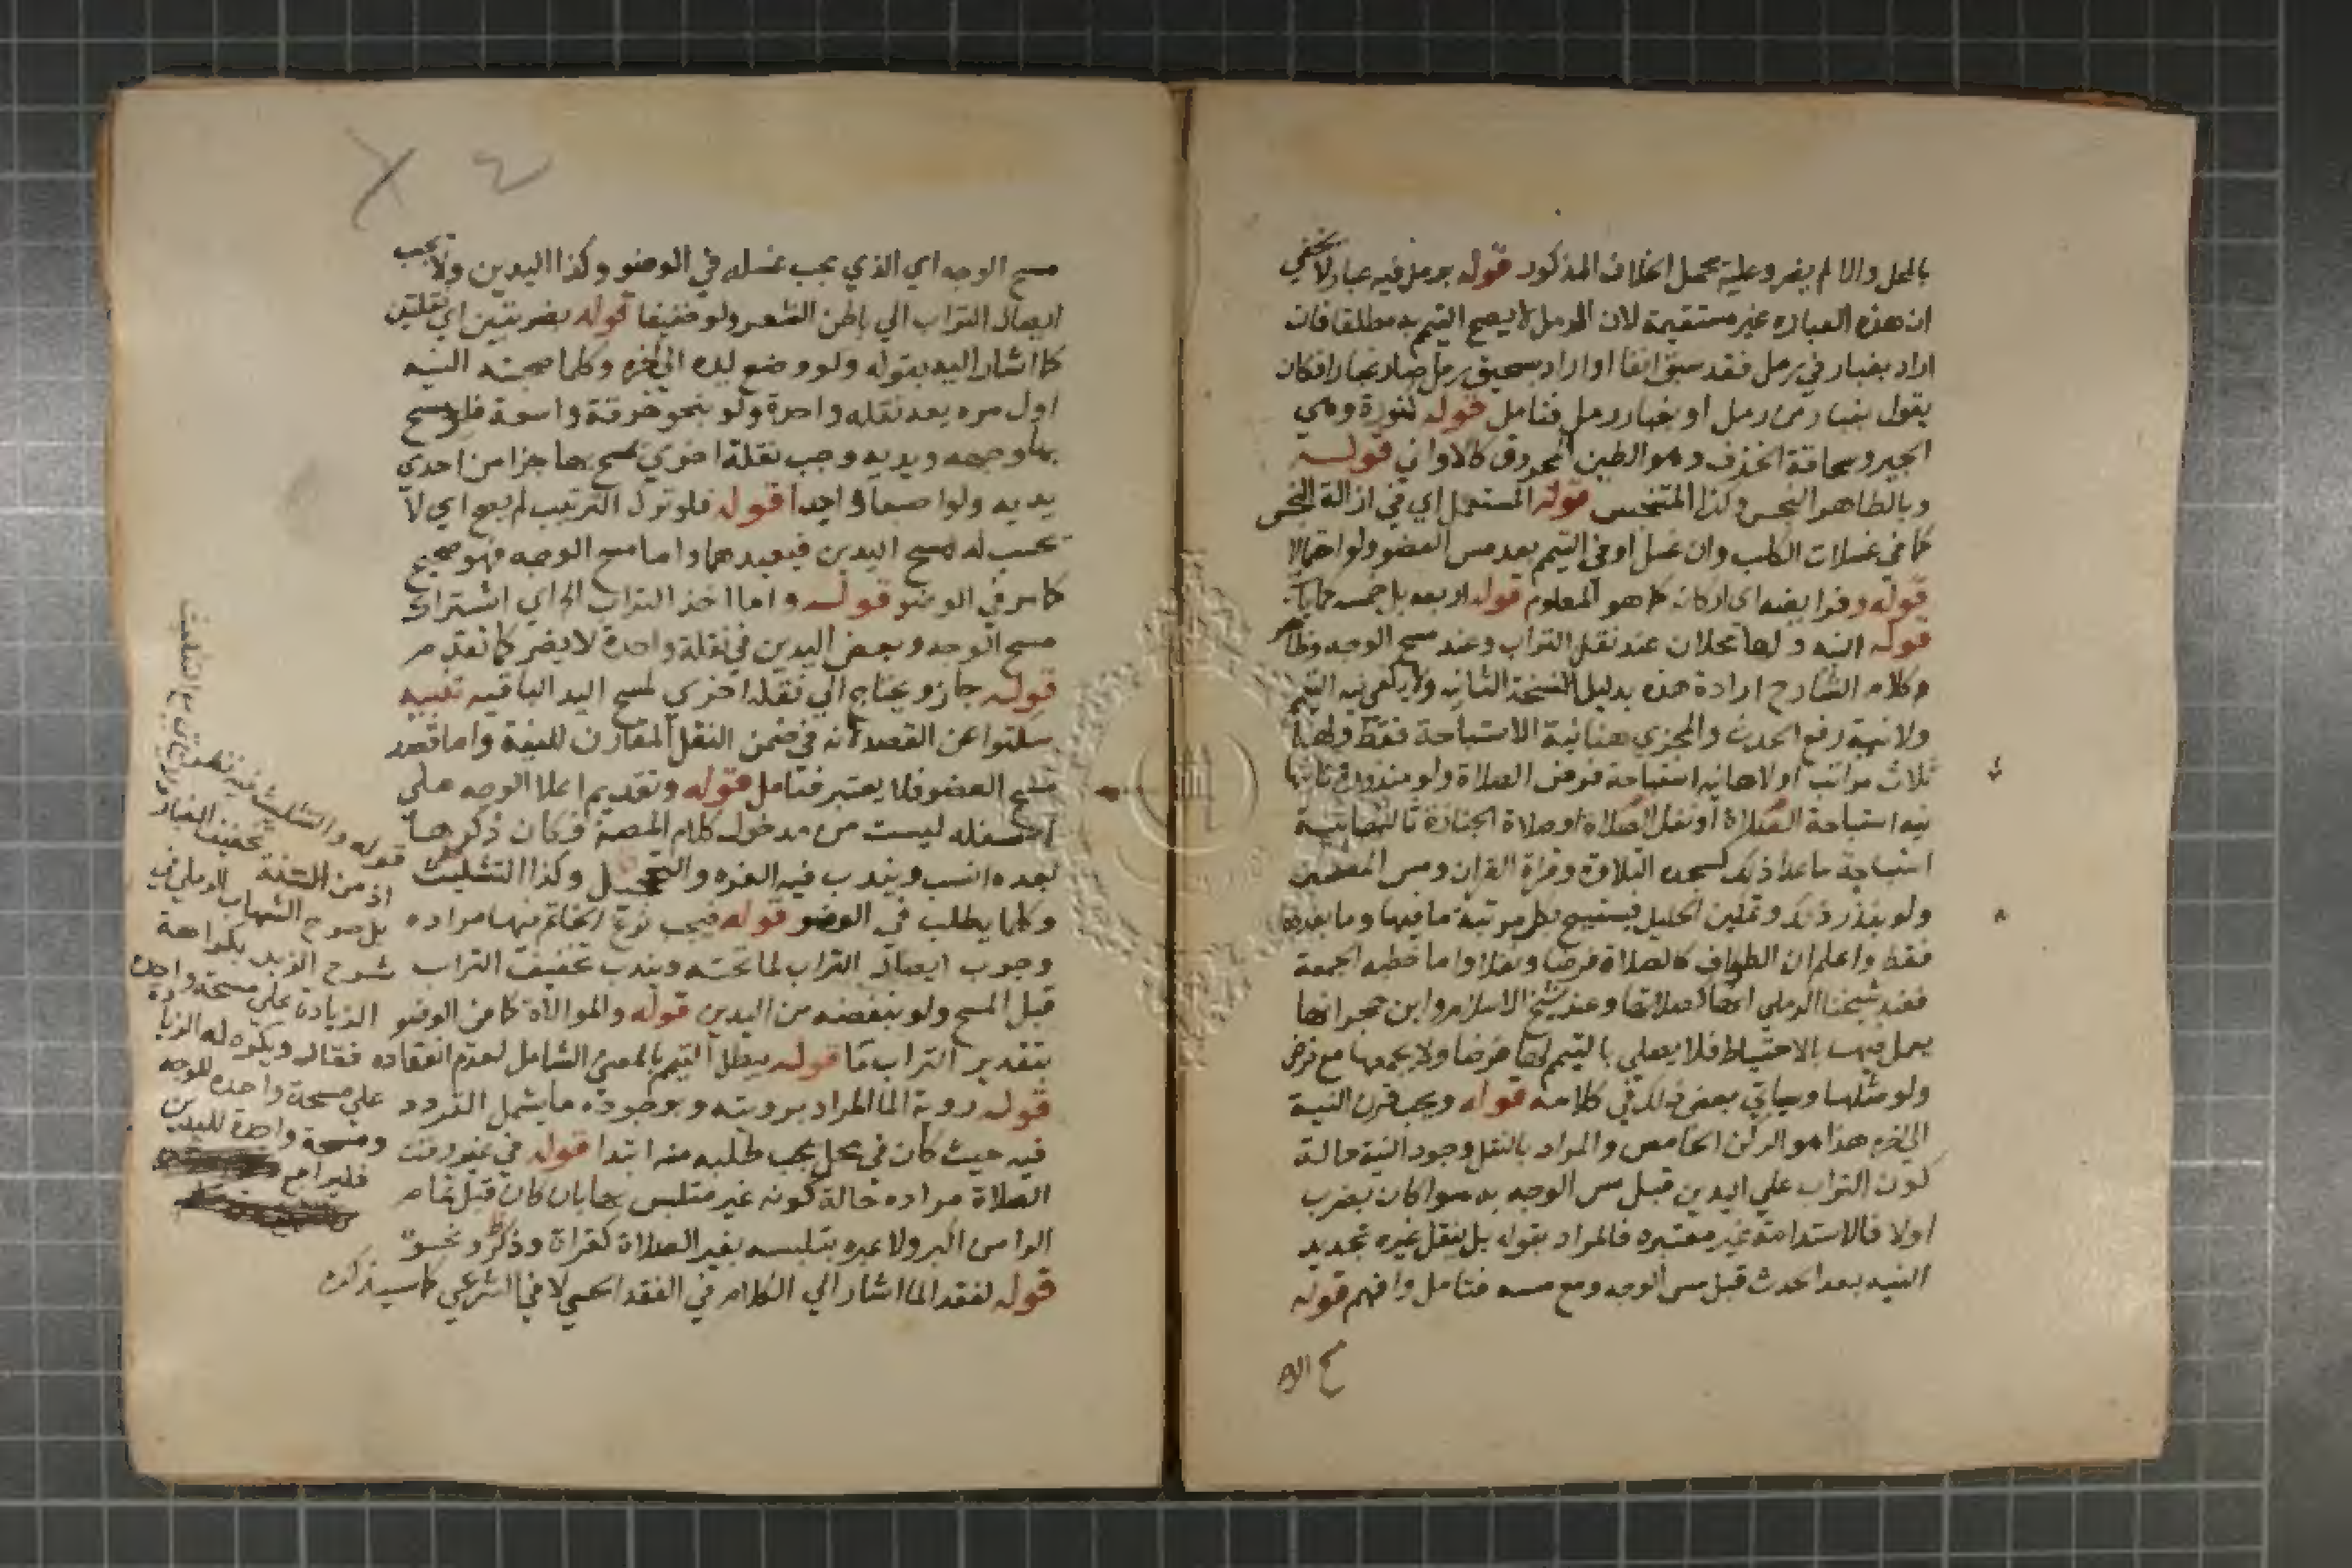 بالمحل والا لم يضر وعليه يحمل الخلاف المذكور قوله برمل فيه غبار لا يخفي
ان هذه العبارة غير مستقيمة لان الرمل لا يصح التيمم به مطلقا فان
اراد بغبار في رمل فقد سبق انفا او اراد بسحيق رمل صار غبارا فكان
يقول بغبار من رمل او غبار رمل فتامل قوله لنورة وهي
الجير وسحاقة الخذف وهو الطين المحروق كالاواني قوله
وبالطاهر النجس وكذا المتنجس قوله المستعمل اي في ازالة النجس
كما في غسلات الكلب وان غسل او في التيمم بعد مس العضو ولو احتمالا
قوله وفرايضه اي اركانه كما هو المعلوم قوله اربعه بل خمسه كما ياتي
قوله النيه ولها محلان عند نقل التراب وعند مسح الوجه وظاهر
وكلام الشارح ارادة هذه بدليل النسخة الثانيه ولا يكفي نيه التيمم
ولا نية رفع الحدث والمجزي هنا نية الاستباحة فقط ولها
ثلاث مراتب اولاها نيه استباحة فرض الصلاة ولو منذورة ثانيها
نيه استباحة الصلاة او نفل الصلاة او صلاة الجنازة ثالثها نية
استباحة ما عدا ذلك كسجدة التلاوة وقراة القران ومس المصحف
ولو بنذر ذلك وتمكين الحليل فيستبيح بكل مرتبة ما فيها وما بعدها
فقط واعلم ان الطواف كالصلاة فرضا ونفلا واما خطبه الجمعة
فعند شيخنا الرملي انها كصلاتها وعند شيخ الاسلام وابن حجر انها
يعمل فيها بالاحتياط فلا يصلي بالتيمم لها فرضا ولا يجمعها مع فرض
ولو مثلها وسياتي بعض ذلك في كلامه قوله ويجب قرن النية
الي اخره هذا هو الركن الخامس والمراد بالنقل وجود النية حالة
كون التراب علي اليدين قبل مس الوجه به سوا كان بضرب
اولا فالاستدامة غير معتبره فالمراد بقوله بل ينقل غيره تجديد
النيه بعد الحدث قبل مس الوجه ومع مسه فتامل وافهم قوله
مسح الو
مسح الوجه اي الذي يجب غسله في الوضو وكذا اليدين ولا يجب
ايصال التراب الي باطن الشعر ولو خفيفا قوله بضربتين اي بنقلتين
كما اشار اليه بقوله ولو وضع يده الي اخره وكلما صحته النيه
اول مره بعد نقله واحدة ولو بنحو خرقة واسعة فلو مسح
بها وجهه ويديه وجب نقلة اخري يمسح بها جزا من احدي
يديه ولو اصبعا واحدا قوله فلو ترك الترتيب لم يصح اي لا
يحسب له مسح اليدين فيعيدهما واما مسح الوجه فهو صحيح
كما مر في الوضو قوله واما اخذ التراب الخ اي اشتراك
مسح الوجه وبعض اليدين في نقلة واحدة لا يضر كما تقدم
قوله جاز ويحتاج الي نقله اخري لمسح اليد الباقيه تنبيه
سكتوا عن القصد لانه في ضمن النقل المقارن للنية واما قصد
مسح العضو فلا يعتبر فتامل قوله وتقديم اعلا الوجه علي
اسفله ليست من مدخول كلام المصنف فكان ذكرها
بعده انسب ويندب فيه الغره والتحجيل وكذا التثليث
وكلما يطلب في الوضو قوله فيجب نزع الخاتم فيها مراده
وجوب ايصال التراب لما تحته ويندب تخفيف التراب
قبل المسح ولو بنفضه من اليدين قوله والموالاة كما في الوضو
بتقدير التراب ما قوله يبطل التيمم بالمعني الشامل لعدم انعقاده
قوله روية الما المراد برويته وبوجوده ما يشمل التردد
فيه حيث كان في محل يجب طلبه منه ابتدا قوله في غير وقت
الصلاة مراده حالة كونه غير متلبس بها بان كان قبل تمام
الرا من اكبر ولا عبره بتلبسه بغير الصلاة كقراة وذكر ونحوه
قوله لفقد الما اشار الي الكلام في الفقد الحسي لا في الشرعي كما سيذكره
قوله والتثليث فيه نظر
اذ من السنة تخفيف الغبار
بل صرح الشهاب الرملي في
شرح الزبد بكراهة
الزيادة علي مسحة واحدة
فقال ويكره له الزيادة
علي مسحة واحده للوجه
ومسحة واحدة لليدين
فليراجع